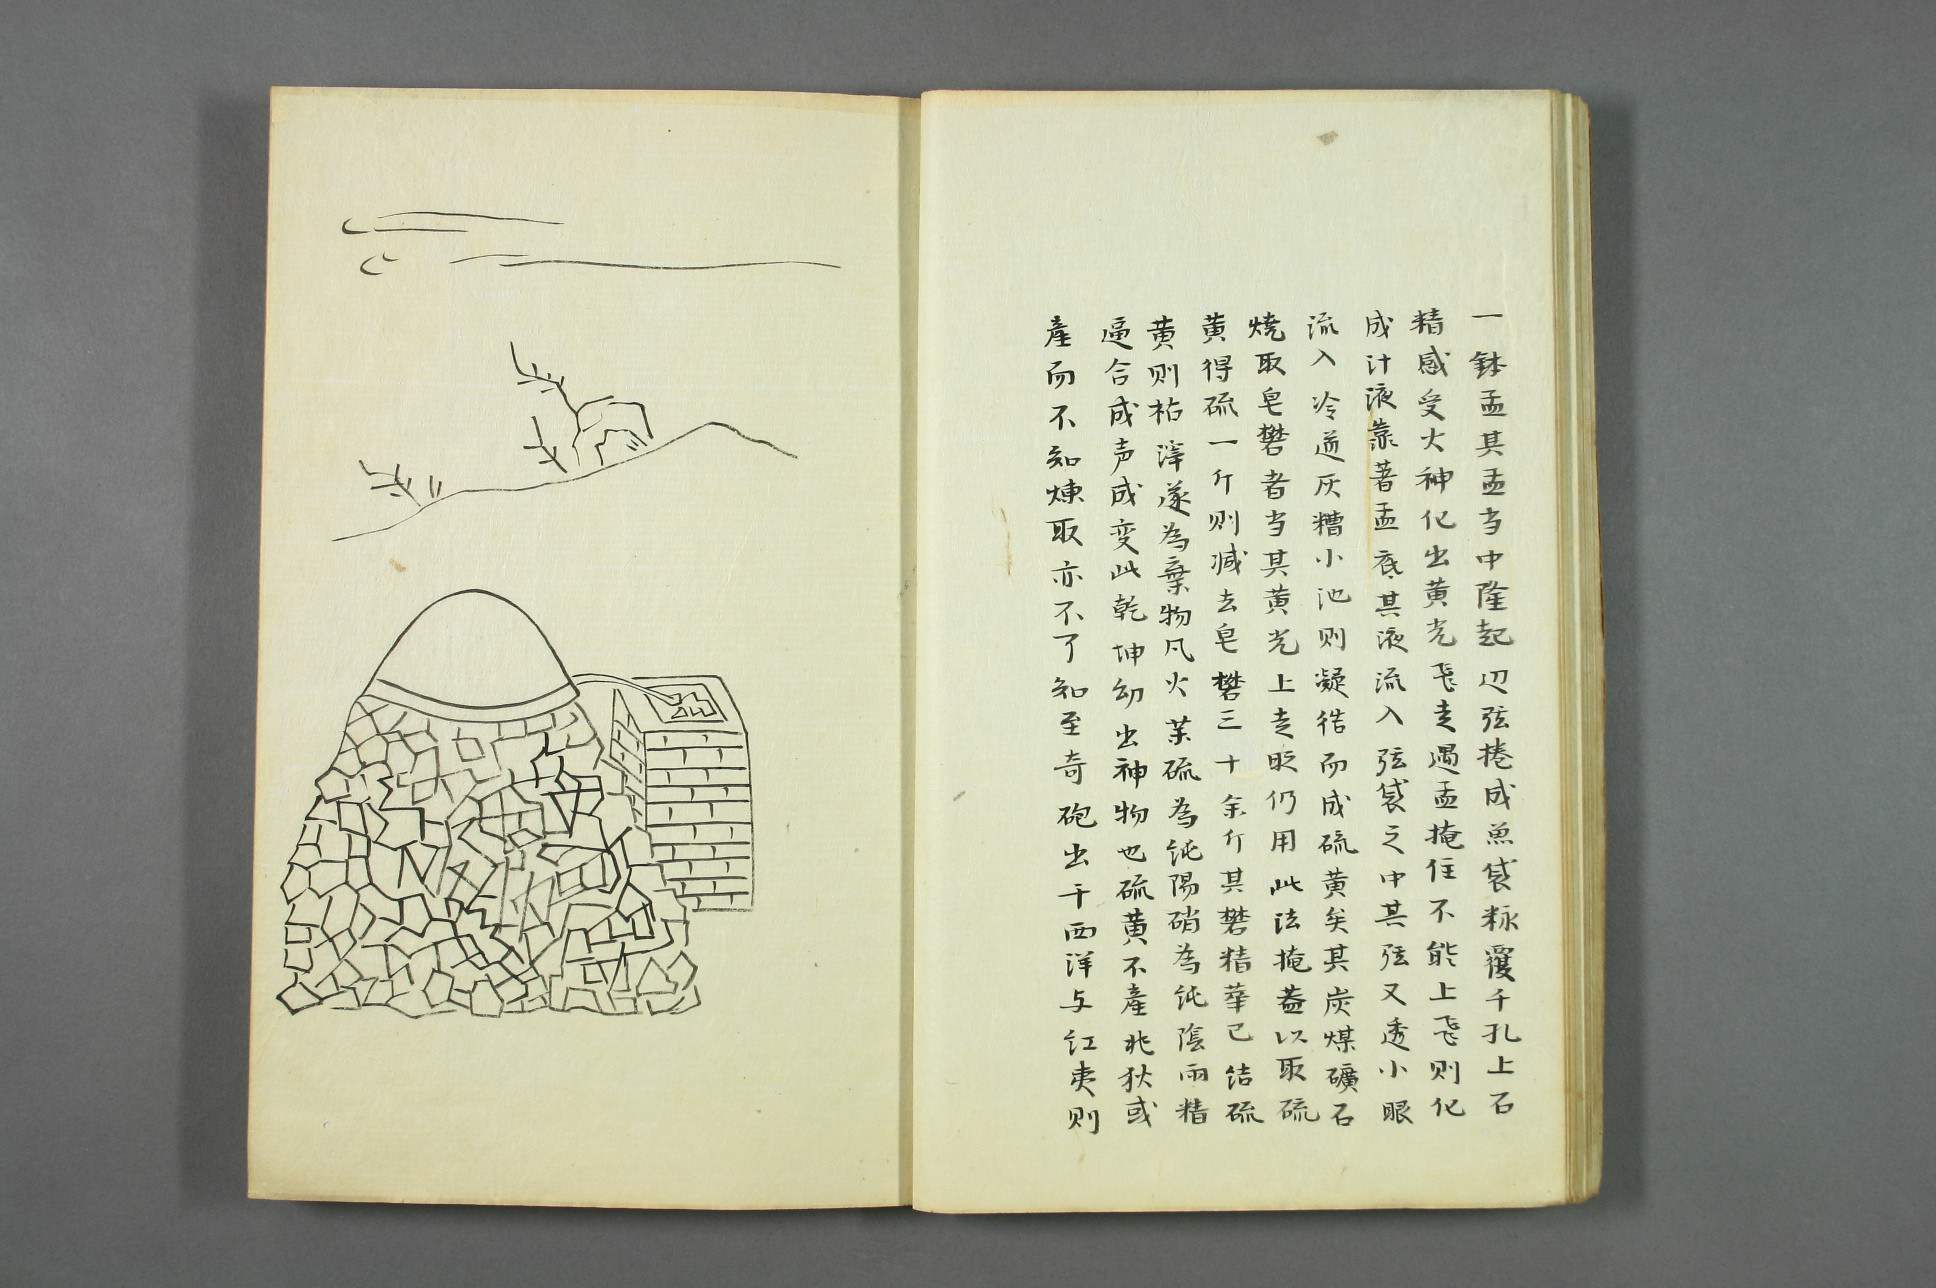 一鉢盂其盂当中隆起辺弦捲成魚袋𥹥覆于孔上石
精感受火神化出黄光飛走遇盂掩住不能上飛则化
成汁液靠著盂底其液流入弦袋之中其弦又透小眼
流入冷道灰糟小池则凝结而成硫黄矣其炭煤礦石
燒取皂礬者当其黄光上走时仍用此法掩蓋以取硫
黄得硫一斤则減去皂礬三十余斤其礬精華已结硫
黄则枯滓遂為棄物凡火药硫為纯陽硝為纯陰両精
逼合成声成变此乾坤幻出神物也硫黄不産北狄或
産而不知煉取亦不了知至奇砲出于西洋与红夷则